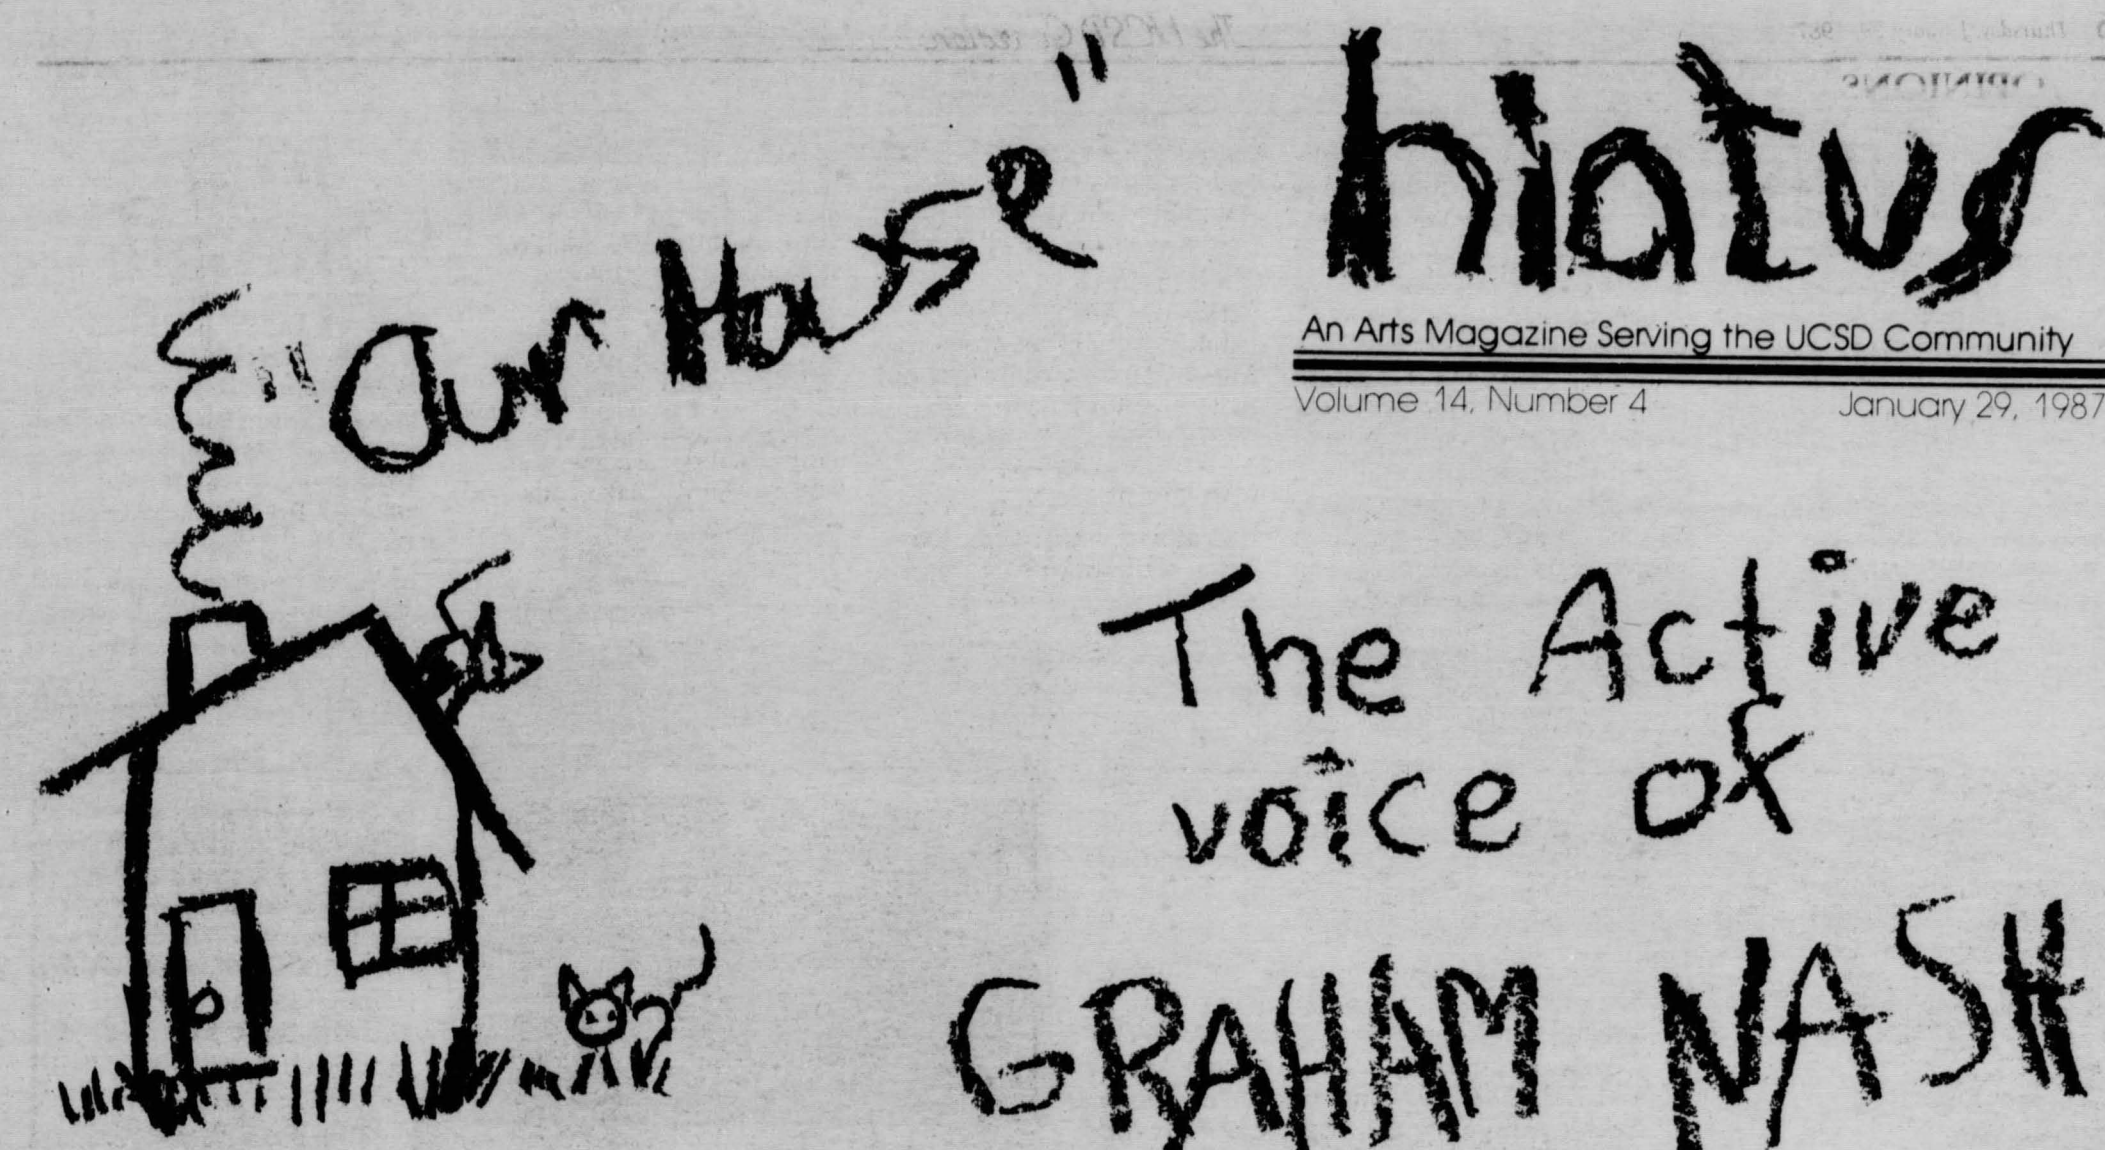 "Our House"
hiatus
An Arts Magazine Serving the UCSD Community
Volume 14, Number 4 January 29, 1987
The Active
voice of
GRAHAM NASH